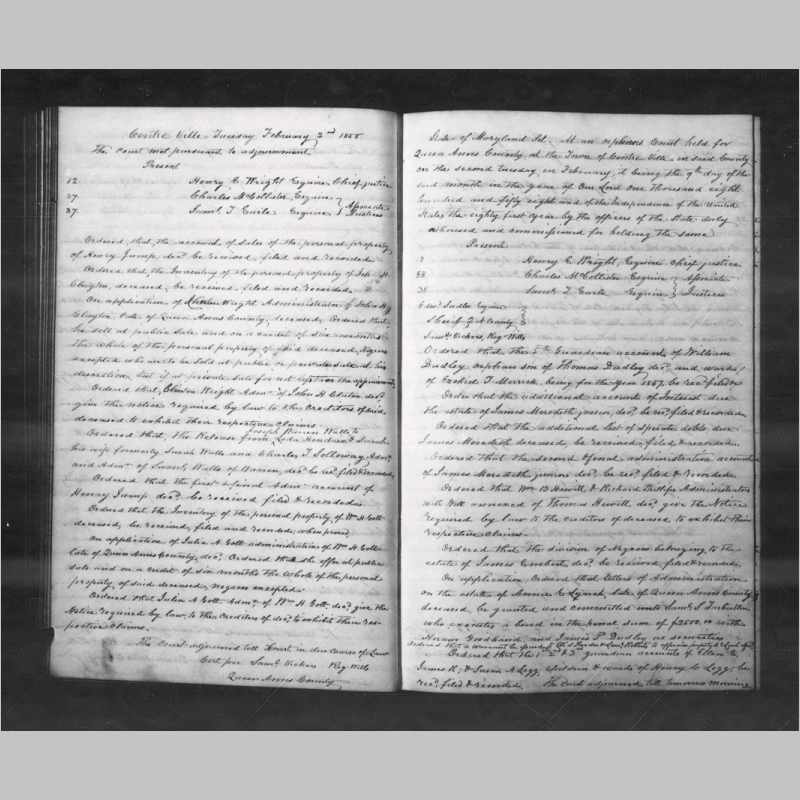 Centre Ville Tuesday February 2nd 1858
The Court met pursuant to adjournment
Present
12 Henry C. Wright Esquire, Chief justice
27 Charles McCollister Esquire } Associate
37 Saml. T. Earle Esquire } Justices
Ordered that the account of sales of the personal property
of Henry Jump, decd. be received, filed and recorded
Ordered that the Inventory of the personal property of
Clayton, deceased, be received filed and recorded.
On application of Wright Administrator of John H
Clayton, late of Queen Anns County, deceased, Ordered that
be sold at public sale and on a credit of six months
the whole of the personal property of said deceased, negroes
excepted who are to be sold at public or private sale at his
discretion, but if at private sale for not less than the appraisement
Ordered that, Wright Admr. of John H Clayton decd.
give the notice required by law to the Creditors of said
deceased to exhibit their respective claims
Ordered that, the Release from
his wife formerly Sarah Wells and Charles T. Solloway Admr.
and Admr. of Wells of Warren, decd. be recd. filed & recorded
Ordered that the first & final Admn account of
Henry Jump decd. be received filed & recorded
Ordered that the Inventory of the personal property of Wm H Gott
deceased, be received, filed and recorded, when proved
On application of Julia A. Gott administratrix of Wm H Gott
late of Queen Anns County, decd. Ordered that she offer at public
sale and on a credit of six months the whole of the personal
property of said deceased, negroes excepted.
Ordered that Julia A Gott Admx. of Wm H Gott, decd. give the
Notice required by law, to the Creditors of decd. to exhibit their res-
pective claims.
The Court adjourned till Court in due course of Law
Test per Saml. Vickers Reg Wills
Queen Anns County
State of Maryland Sct. At an orphans Court held for
Queen Anns County, at the Town of Centre Ville in said County
on the second Tuesday in February, it being the 9th day of the
said month in the year of our Lord one Thousand eight
hundred and fifty eight and of the Independence of the United
States the eighty first year by the officers of the State duly
authorised and commissioned for holding the same
Present
Henry C. Wright, Esquire Chief justice
38 Charles McCollister Esquire } Associate
38 Saml T. Earle Esquire } Justices
Sudler Esquire
Sheriff Q A County
Saml Vickers, Reg Wills
Ordered that the Guardian account of William
Dudley orphan son of Thomas Dudley decd. and ward
of Ezekiel T. Merrick, being for the year 1857, be recd. filed &
Order that the additional accounts of Interest due
the estate of James Meredith junior, decd. be recd. filed & recorded.
Ordered that the additional list of sperate debts due
James Meredith deceased, be received, filed & recorded.
Ordered that the second & final administration account
of James Meredith junior decd. be recd. filed & recorded.
Ordered that Wm B Hewitt & Richard Administrators
with Will annexed of Thomas Hewitt, decd. give the Notice
required by law to the creditors of deceased to exhibit their
respective claims.
Ordered that the division of Negroes belonging to the
estate of James decd. be received filed & recorded.
On application, Ordered that letters of Administration
on the estate of Annie C. Lynch, late of Queen Anns County
deceased, be granted and committed unto Saml. T.
who executes a bond in the penal sum of $2500.00 with
Goodhand, and James P. Dudley as securities
Ordered that the 2nd & 3d guardian accounts of Ellen C.
James K, & Susan A Legg, children & wards of Henry C Legg, be
recd. filed & recorded. The Court adjourned till tomorrow morning